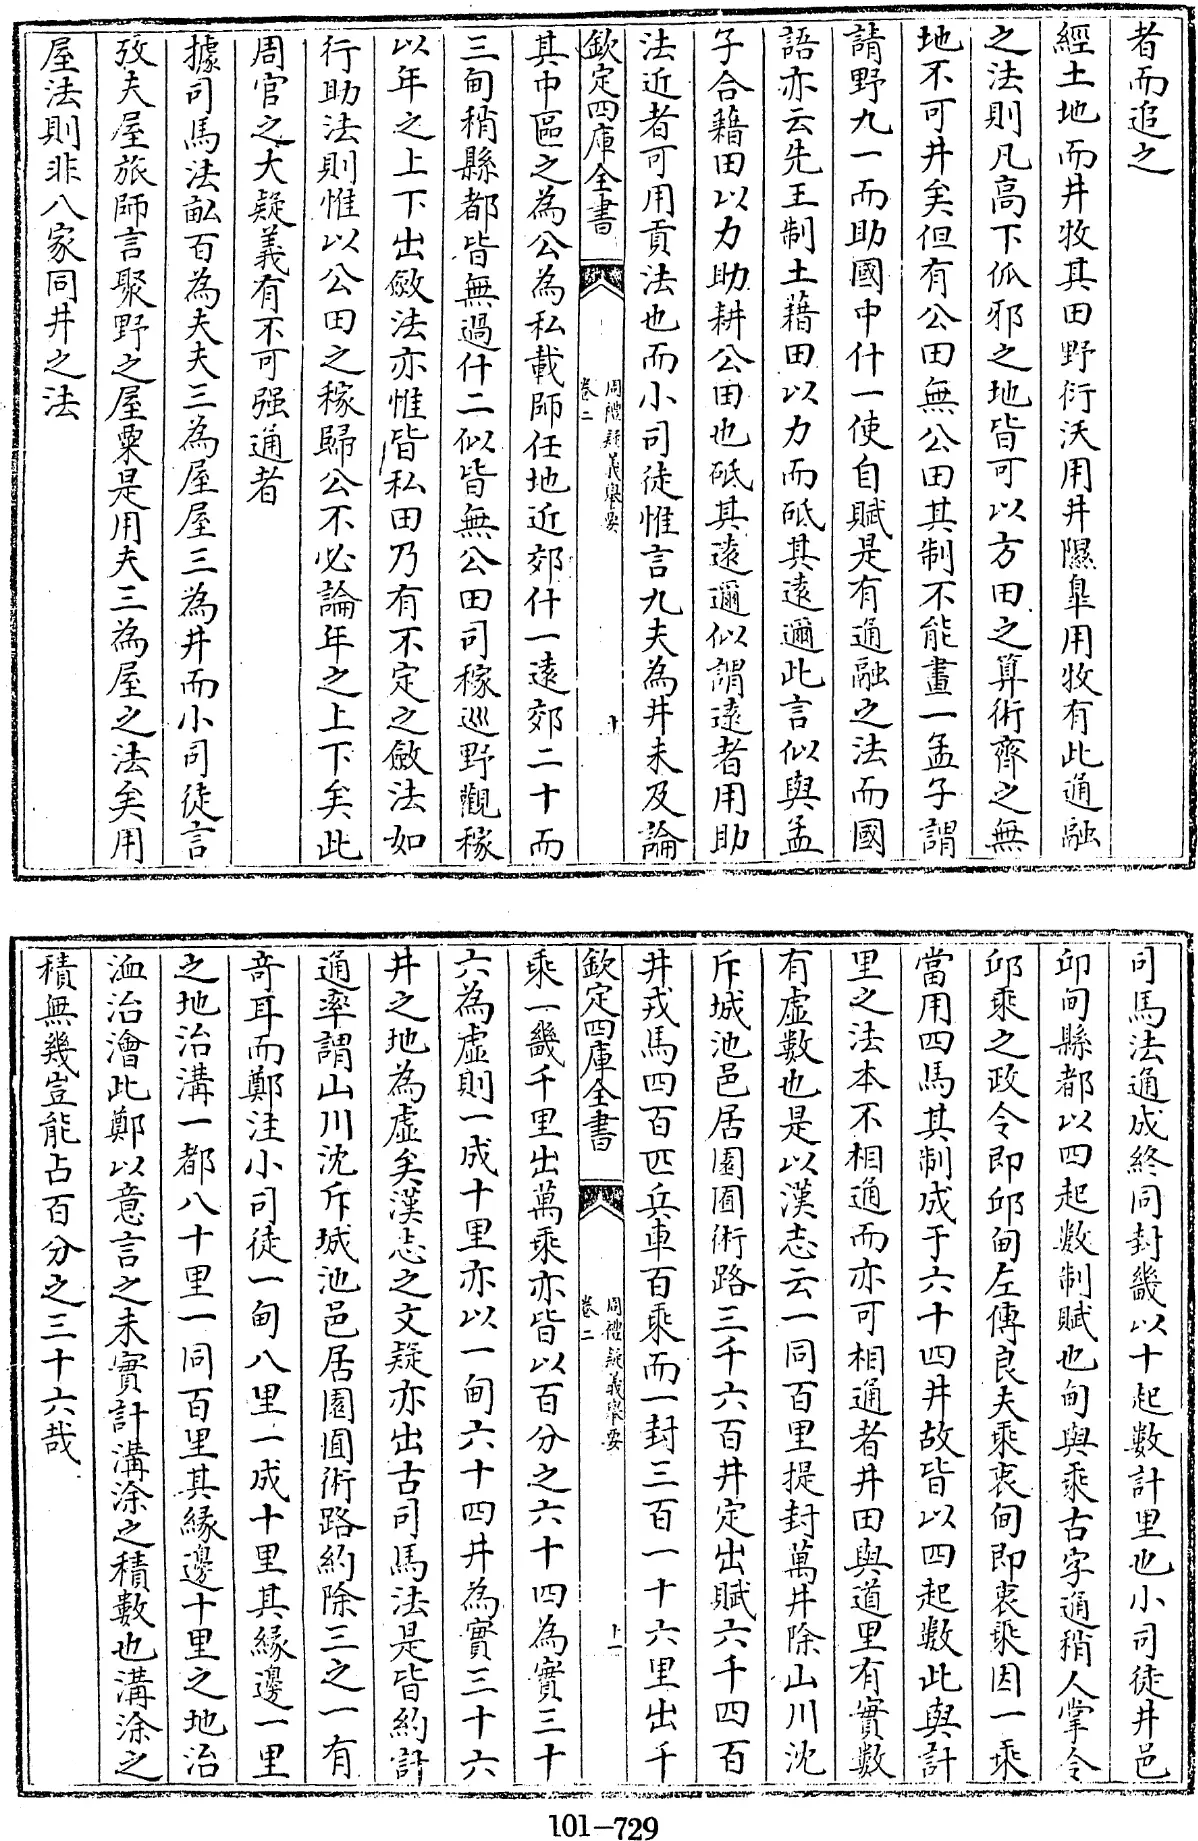 者而追之
經土地而井牧其田野衍沃用井隰臯用牧有此通融
之法則凡高下㐲邪之地皆可以方田之算術齊之無
地不可井矣但有公田無公田其制不能畫一孟子謂
請野九一而助國中什一使自賦是有通融之法而國
語亦云先王制土藉田以力而砥其逺邇此言似與孟
子合藉田以力助耕公田也砥其逺邇似謂逺者用助
法近者可用貢法也而小司徒惟言九夫為井未及論
欽定四庫全書
周禮疑義舉要
卷二
十
其中區之為公為私載師任地近郊什一逺郊二十而
三甸稍縣都皆無過什二似皆無公田司稼巡野觀稼
以年之上下出斂法亦惟皆私田乃有不定之斂法如
行助法則惟以公田之稼歸公不必論年之上下矣此
周官之大疑義有不可强通者
據司馬法畝百為夫夫三為屋屋三為井而小司徒言
攷夫屋旅師言聚野之屋粟是用夫三為屋之法矣用
屋法則非八家同井之法
司馬法通成終同封畿以十起數計里也小司徒井邑
邱甸縣都以四起數制賦也甸與乘古字通稍人掌令
邱乘之政令即邱甸左傳良夫乘衷甸即衷乘因一乘
當用四馬其制成于六十四井故皆以四起數此與計
里之法本不相通而亦可相通者井田與道里有實數
有虛數也是以漢志云一同百里提封萬井除山川沈
斥城池邑居園囿術路三千六百井定出賦六千四百
井戎馬四百匹兵車百乘而一封三百一十六里出千
欽定四庫全書
周禮疑義舉要
卷二
十一
乘一畿千里出萬乘亦皆以百分之六十四為實三十
六為虛則一成十里亦以一甸六十四井為實三十六
井之地為虛矣漢志之文疑亦出古司馬法是皆約計
通率謂山川沈斥城池邑居園囿術路約除三之一有
竒耳而鄭注小司徒一甸八里一成十里其緣邊一里
之地治溝一都八十里一同百里其緣邊十里之地治
洫治澮此鄭以意言之未實計溝涂之積數也溝涂之
積無幾豈能占百分之三十六哉
101-729